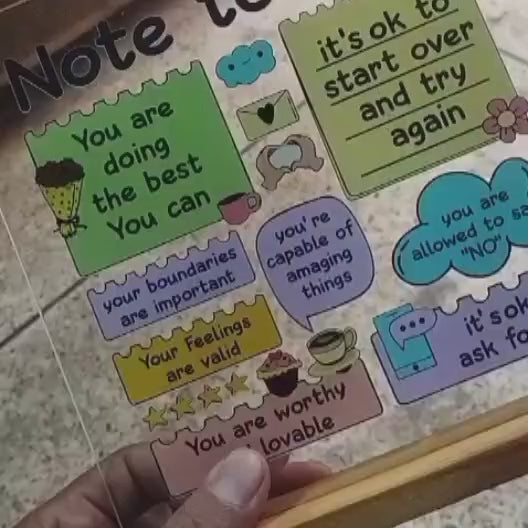 Note to
it's ok to
start over
and try
again
You are
doing
the best
You can
you're
capable of
amaging
things
you are
allowed to
"NO"
your boundaries
are important
Your Feelings
are valid
it's
ask
You are worthy
lovable